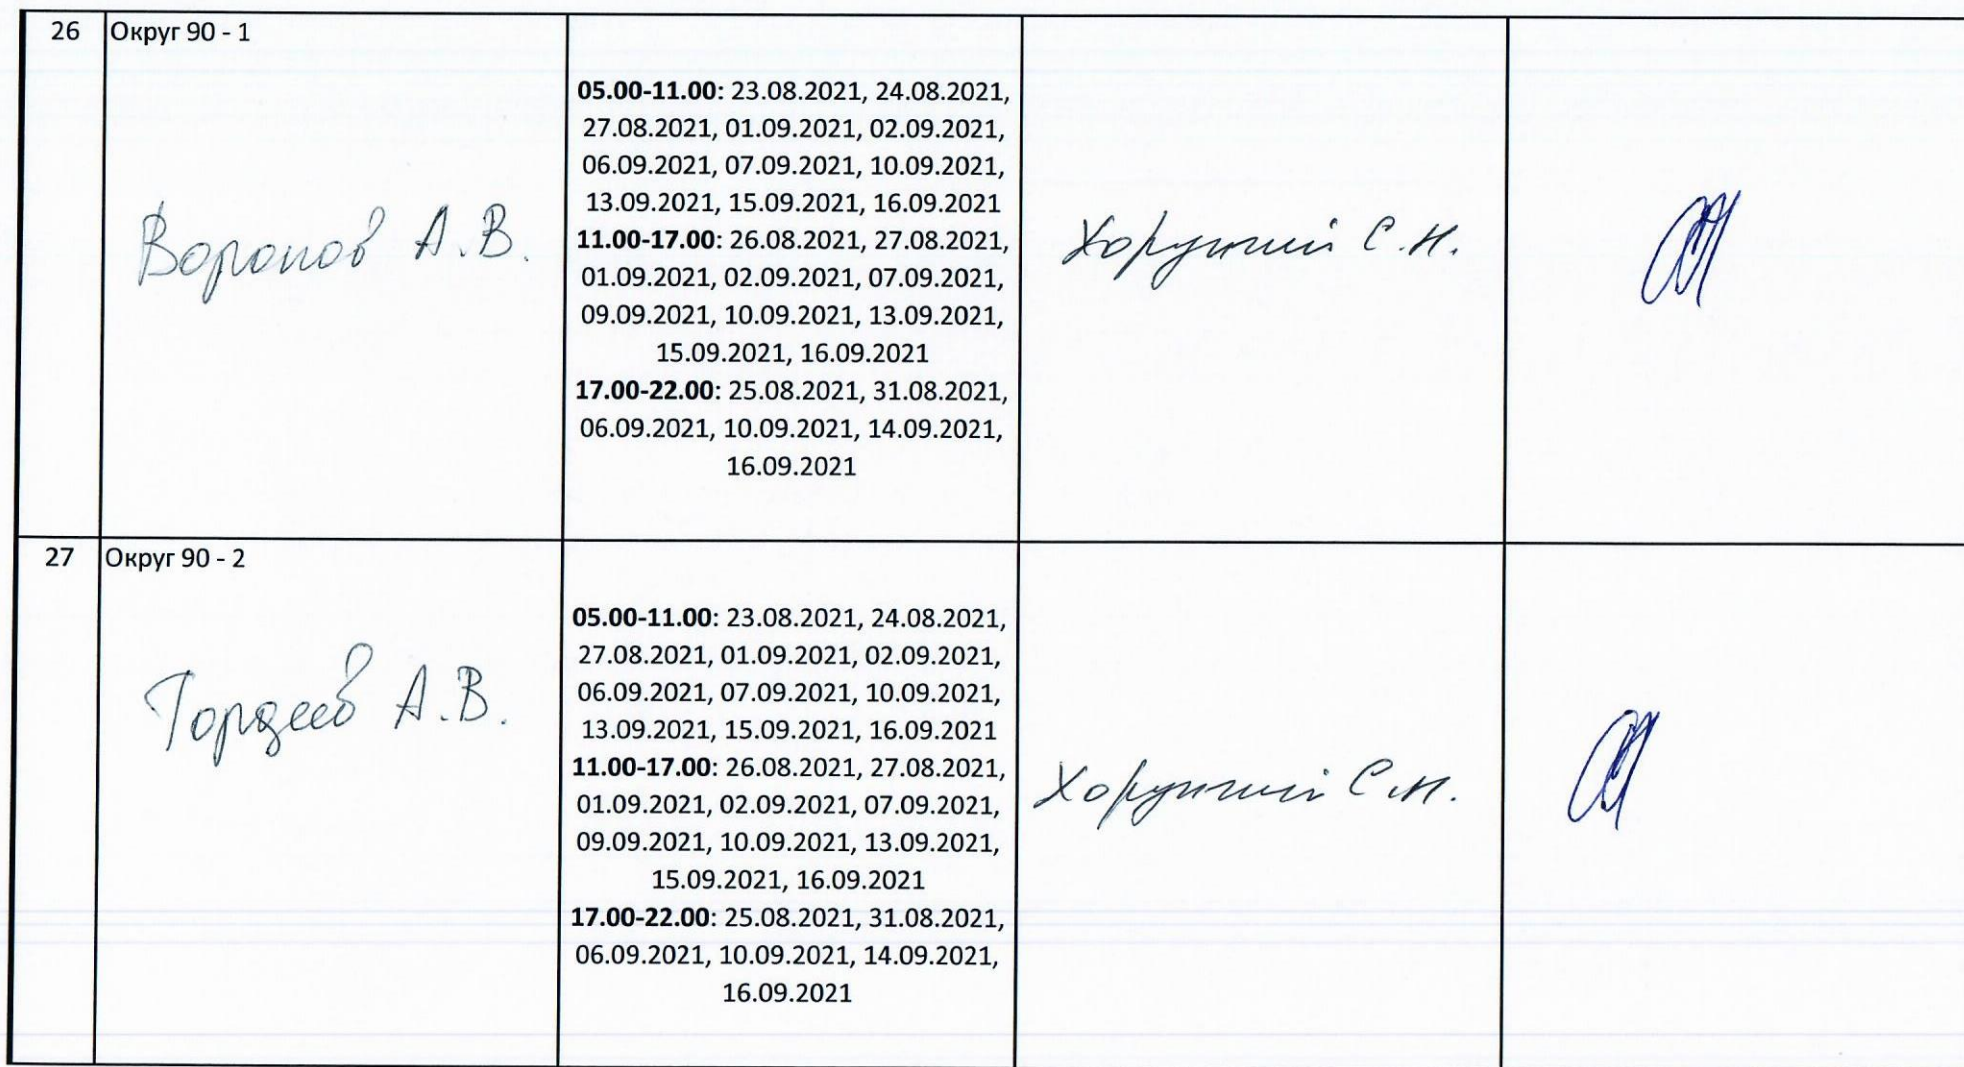 26 Округ 90 - 1
Воронов А.В.
05.00-11.00: 23.08.2021, 24.08.2021,
27.08.2021, 01.09.2021, 02.09.2021,
06.09.2021, 07.09.2021, 10.09.2021,
13.09.2021, 15.09.2021, 16.09.2021
11.00-17.00: 26.08.2021, 27.08.2021,
01.09.2021, 02.09.2021, 07.09.2021,
09.09.2021, 10.09.2021, 13.09.2021,
15.09.2021, 16.09.2021
17.00-22.00: 25.08.2021, 31.08.2021,
06.09.2021, 10.09.2021, 14.09.2021,
16.09.2021
Хорунжий С.Н.
27 Округ 90 - 2
Гордеев А.В.
05.00-11.00: 23.08.2021, 24.08.2021,
27.08.2021, 01.09.2021, 02.09.2021,
06.09.2021, 07.09.2021, 10.09.2021,
13.09.2021, 15.09.2021, 16.09.2021
11.00-17.00: 26.08.2021, 27.08.2021,
01.09.2021, 02.09.2021, 07.09.2021,
09.09.2021, 10.09.2021, 13.09.2021,
15.09.2021, 16.09.2021
17.00-22.00: 25.08.2021, 31.08.2021,
06.09.2021, 10.09.2021, 14.09.2021,
16.09.2021
Хорунжий С.Н.